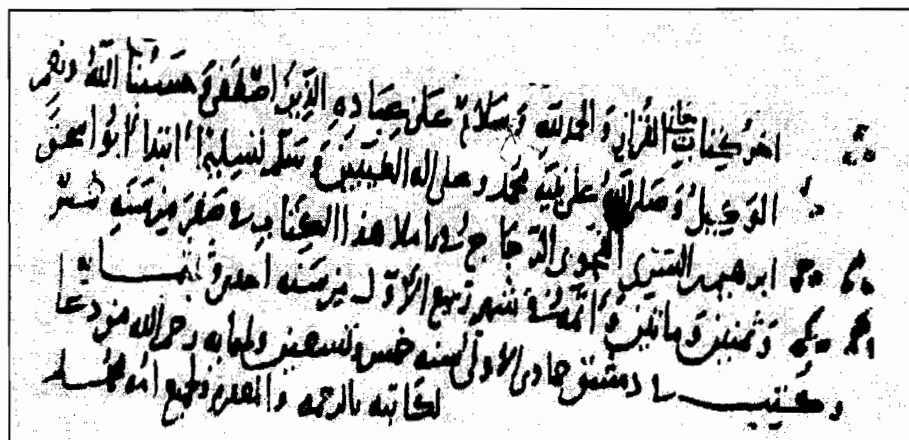 اخر كتاب معاني القران والحمد لله وسلام على عباده الذين اصطفى وحسبنا الله ونعم
الوكيل وصلى الله على نبيه محمد وعلى اله الطيبين وسلم تسليما ابتدا ابو اسحق
ابرهيم بن السري النحوي الزجاج في املا هذا الكتاب في صفر من سنه خمس
وثمنين ومائتين واتمه في شهر ربيع الاول من سنه احدى وثلثمايه
وكتب بدمشق جمادى الاولى لسنه خمس وتسعين وثلثمايه رحم الله من دعا
لكاتبه بالرحمه والمغفره ولجميع امه محمد